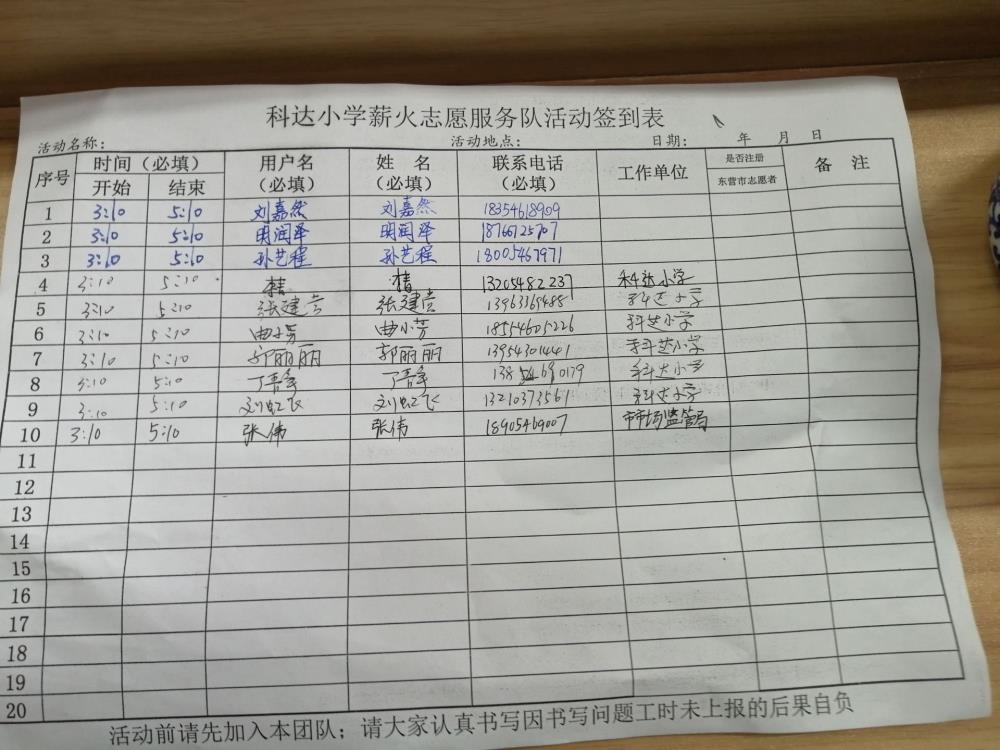 科达小学薪火志愿服务队活动签到表
活动名称： 活动地点： 日期： 年 月 日
序号 时间（必填） 用户名（必填） 姓 名（必填） 联系电话（必填） 工作单位 是否注册 东营市志愿者 备 注
开始 结束
1 3:10 5:10 刘嘉然 刘嘉然 18354618909
2 3:10 5:10 明润泽 明润泽 18766725707
3 3:10 5:10 孙艺程 孙艺程 18005467971
4 3:10 5:10 13205482237 科达小学
5 3:10 5:10 张建营 张建营 13963369488 科达小学
6 3:10 5:10 曲小芳 曲小芳 18554605226 科达小学
7 3:10 5:10 郭丽丽 郭丽丽 13954301441 科达小学
8 3:10 5:10 科达小学
9 3:10 5:10 刘虹飞 刘虹飞 13210373561 科达小学
10 3:10 5:10 张伟 张伟 18905469007 市场监管局
11
12
13
14
15
16
17
18
19
20
活动前请先加入本团队；请大家认真书写因书写问题工时未上报的后果自负